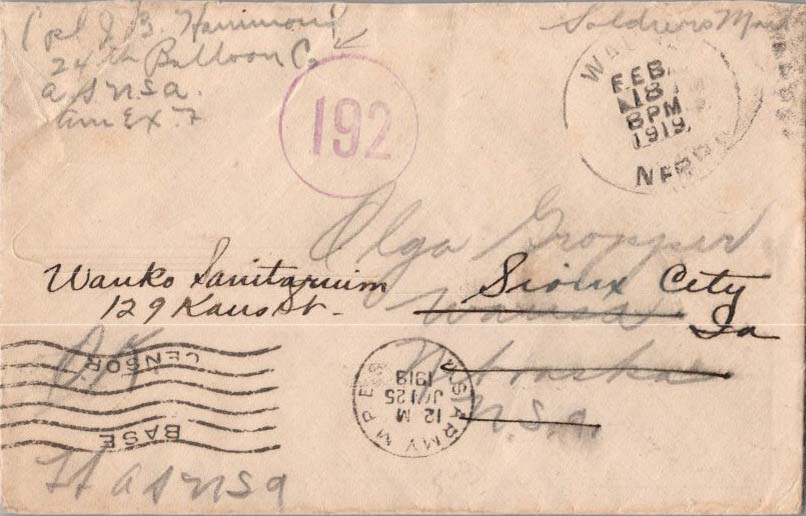 Cpl J. B. Hammond
24th Balloon Co
a S U S a.
am Ex. F
Soldiers Mail
192
FEB
18
8PM
1919
NEBR
Olga
Wauko Sanitarium
129 Kans St.
Sioux City
Wausa
Ia
Nebraska
U.S.a.
OK
CENSOR
BASE
U.S. ARMY M.P.E.S.
12 M
JAN 25
1919
a S U S a